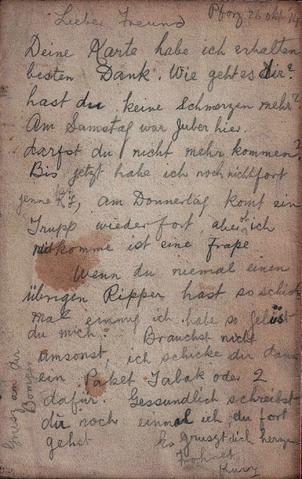 Lieber Freund
Pforz 26 Okt
Deine Karte habe ich erhalten
besten Dank. Wie geht es dir?
hast du keine Schmerzen mehr?
Am Samstag war Juber hier.
darfst du nicht mehr kommen?
Bis jetzt habe ich noch nicht fort
am Donnertag komt ein
Trupp wieder fort, aber ich
komme ist eine frage
Wenn du niemal einen
übrigen Ripper hast so schick
mal ich habe so gelüst
du mich. Brauchst nicht
umsonst, ich schicke dir dann
ein Paket Tabak oder 2
dafür. Gessundlich schreibst
du noch einmal ich du fort
gehst Es grusst dich herzin
Kurz
Gruss an die